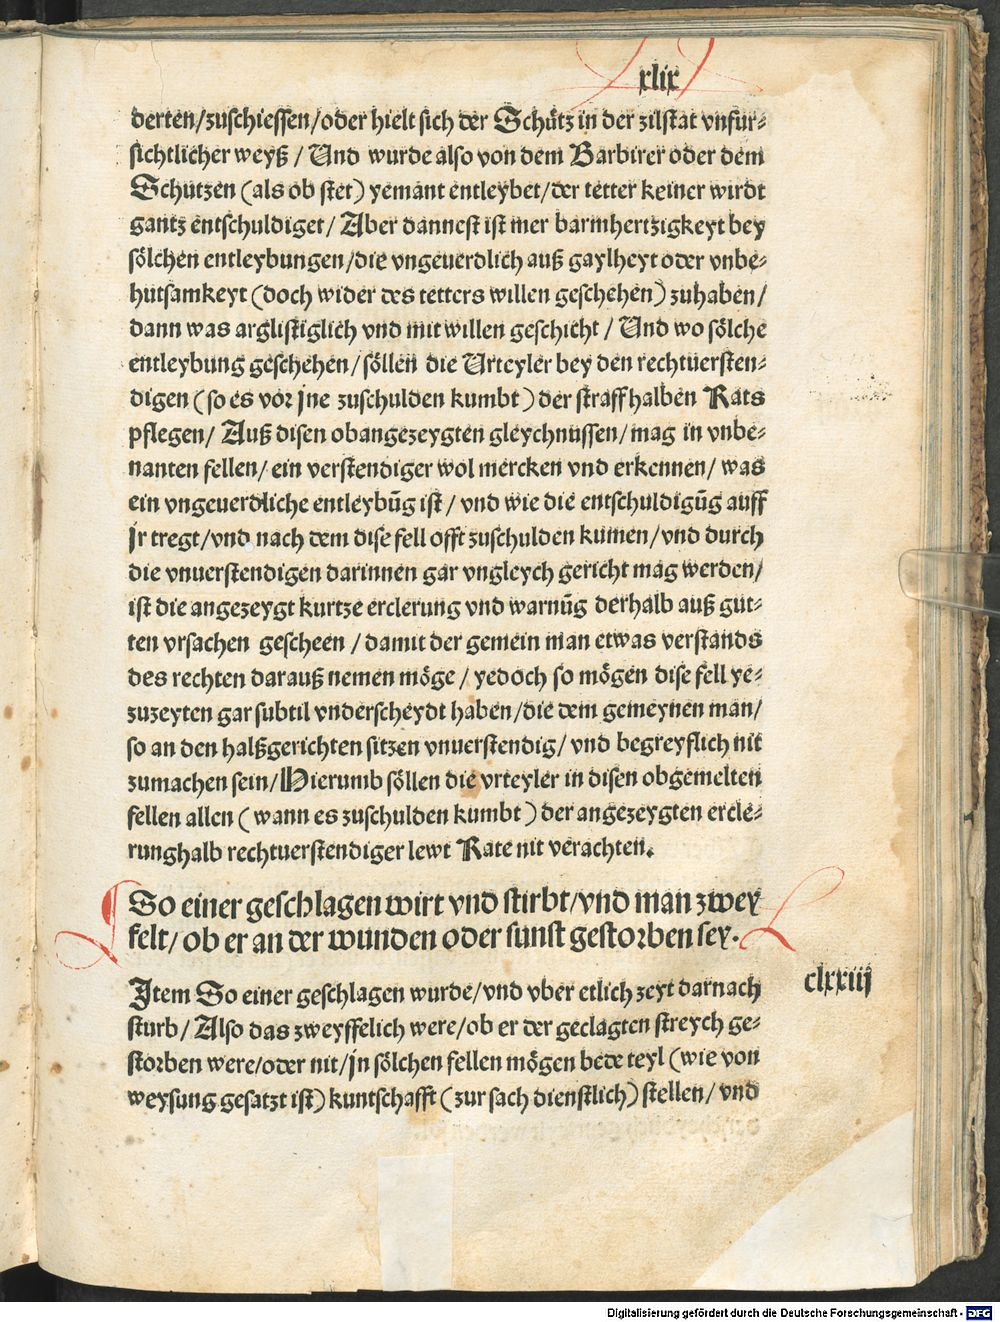 xlix
derten/zuschiessen/oder hielt sich der Schütz in der zilstat vnfur-
sichtlicher weyß / Und wurde also von dem Barbirer oder dem
Schützen (als ob stet) yemant entleybet/der tetter keiner wirdt
gantz entschuldiget/ Aber dannest ist mer barmhertzigkeyt bey
sölchen entleybungen/die vngeuerdlich auß gaylheyt oder vnbe-
hutsamkeyt (doch wider des tetters willen geschehen) zuhaben/
dann was arglistiglich vnd mit willen geschicht / Und wo sölche
entleybung geschehen/ söllen die Urteyler bey den rechtuersten-
digen (so es vor jne zuschulden kumbt) der straff halben Rats
pflegen/ Auß disen obangezeygten gleychnussen/ mag in vnbe-
nanten fellen/ ein verstendiger wol mercken vnd erkennen/ was
ein vngeuerdliche entleybūg ist / vnd wie die entschuldigūg auff
jr tregt/vnd nach dem dise fell offt zuschulden kumen/vnd durch
die vnuerstendigen darinnen gar vngleych gericht mag werden/
ist die angezeygt kurtze erclerung vnd warnūg derhalb auß gut-
ten vrsachen gescheen / damit der gemein man etwas verstands
des rechten darauß nemen möge / yedoch so mögen dise fell ye-
zuzeyten gar subtil vnderscheydt haben/die dem gemeynen man/
so an den halßgerichten sitzen vnuerstendig/ vnd begreyflich nit
zumachen sein/Hierumb söllen die vrteyler in disen obgemelten
fellen allen (wann es zuschulden kumbt) der angezeygten ercle-
runghalb rechtuerstendiger lewt Rate nit verachten.
So einer geschlagen wirt vnd stirbt/vnd man zwey
felt/ ob er an der wunden oder sunst gestorben sey.
clxxiij
Item So einer geschlagen wurde/vnd vber etlich zeyt darnach
sturb/ Also das zweyffelich were/ob er der geclagten streych ge-
storben were/oder nit/jn sölchen fellen mögen bede teyl (wie von
weysung gesatzt ist) kuntschafft (zur sach dienstlich) stellen/ vnd
Digitalisierung gefördert durch die Deutsche Forschungsgemeinschaft - DFG